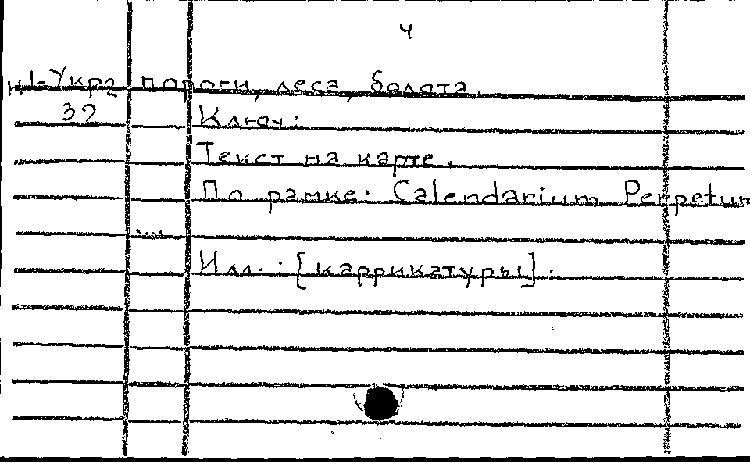 4
К1-Укр2 пороги, леса, болота.
32 Ключ:
Текст на карте.
По рамке: Calendarium Perpetum
Илл.: [каррикатуры].